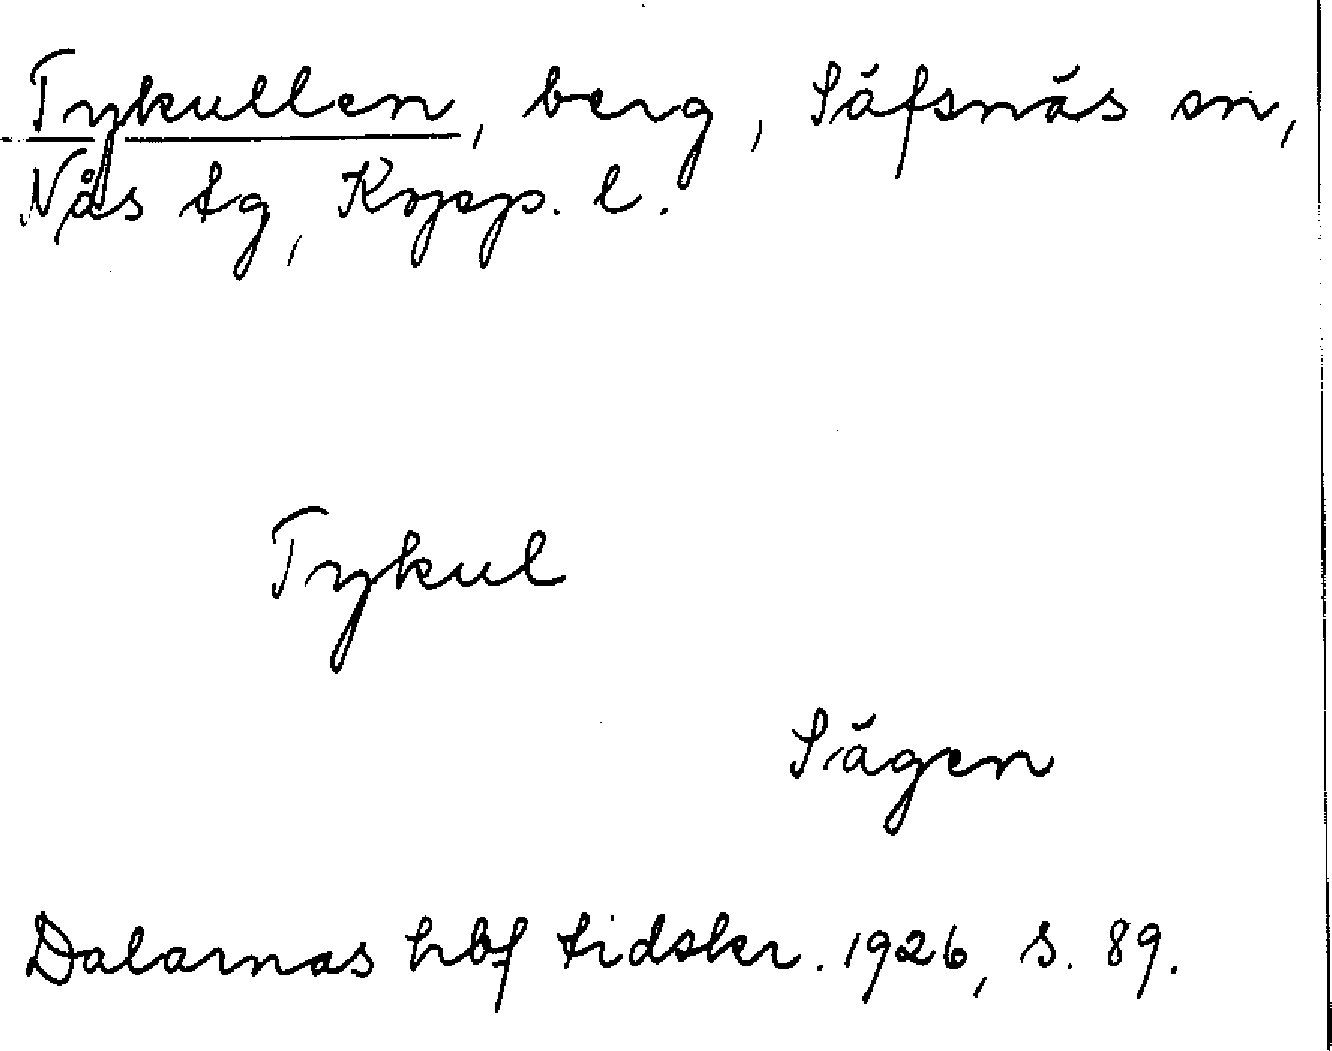 Tykullen, berg, Säfsnäs sn,
Nås tg, Kopp. l.
Tykul
Sägen
Dalarnas hbf tidskr. 1926, s. 89.